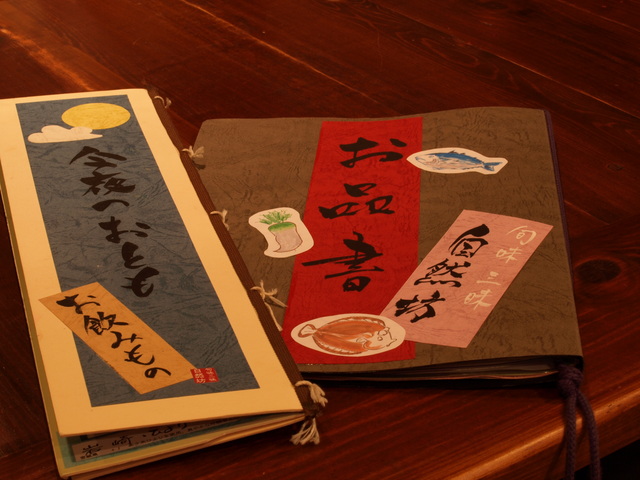 今夜のおとも
お飲みもの
お品書
旬味三味
自然坊